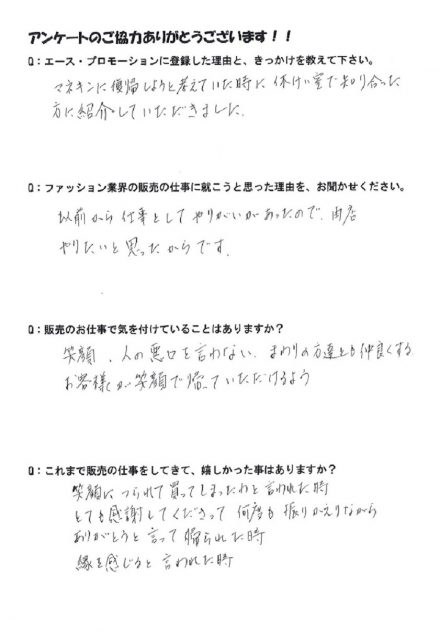 アンケートのご協力ありがとうございます！！
Q：エース・プロモーションに登録した理由と、きっかけを教えて下さい。
マネキンに復帰しようと考えていた時に、休けい室で知り合った
方に紹介していただきました。
Q：ファッション業界の販売の仕事に就こうと思った理由を、お聞かせください。
以前から仕事としてやりがいがあったので、再度
やりたいと思ったからです。
Q：販売のお仕事で気を付けていることはありますか？
笑顔、人の悪口を言わない、まわりの方達とも仲良くする
お客様が笑顔で帰っていただけるよう
Q：これまで販売の仕事をしてきて、嬉しかった事はありますか？
笑顔につられて買ってしまったわと言われた時
とても感謝してくださって何度も振りかえりながら
ありがとうと言って帰られた時
縁を感じると言われた時